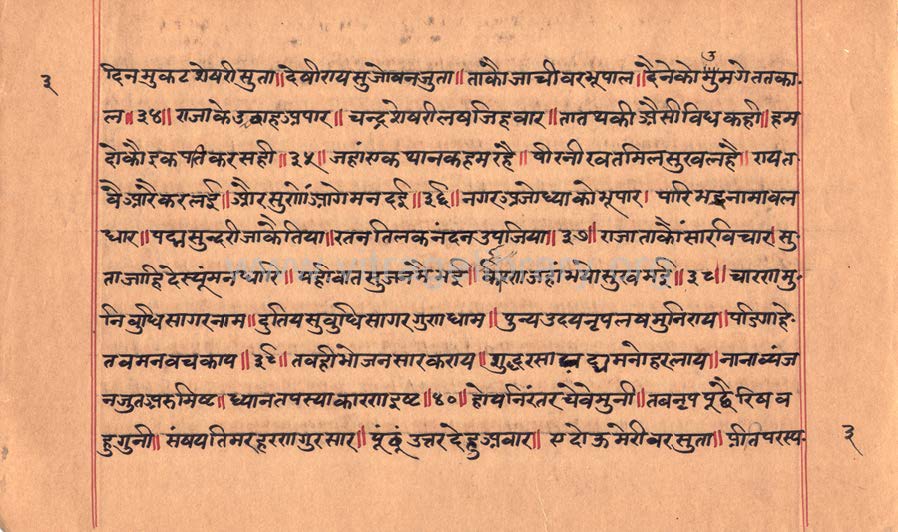 ३
दिनमुकटशेषरीसुता॥ देवीरायसुजोवनजुता॥ ताकौजाचीवरभूपाल॥ दैनेकोमुमगेततका-
ल॥ ३४॥ राजाकेउछाहअपार॥ चन्द्रशेषरीलषजिहवार॥ तातपकीऔसीविधकही॥ हम
दोकौइकपतिकरसही॥ ३५॥ जहांएकथानकहमरहै॥ षीरनीरवतमिलसुखलहै॥ रायत
वैअैारैकरलई॥ औरसुणोंआगेमनदई॥ ३६॥ नगरअजोध्याकोभूपार। पारिभद्रनामावल
धार॥ पद्मसुन्दरीजाकैतिया॥ रतनतिलकनंदनउपजिया॥ ३७॥ राजाताकौसारविचार। सु
ताजाहिदेस्यूंमनधार॥ यहीवातसुजनमैभई॥ उहाभयोसुखमई॥ ३८॥ चारणमु-
निवुधिसागरनाम॥ दुतियसुवुधिसागरगुणधाम॥ पुन्यउदयनृपलषमुनिराय॥ पडिगाहे-
तवमनवचकाय॥ ३९॥ तवहीभोजनसारकराय॥ शुद्धरसामनोहरलाय॥ नानाव्यंज
नजुतअरुमिष्ट॥ ध्यानतपस्याकारणइष्ट॥ ४०॥ होयनिरंतरथेवेमुनी॥ तवनृपपूछैरिषव
हुगुनी॥ संषयतिमरहरणगुरसार॥ पूंछूंउत्तरदेहुअवार॥ एदोऊमेरीवरसुता॥ प्रीतपरस्प-
३